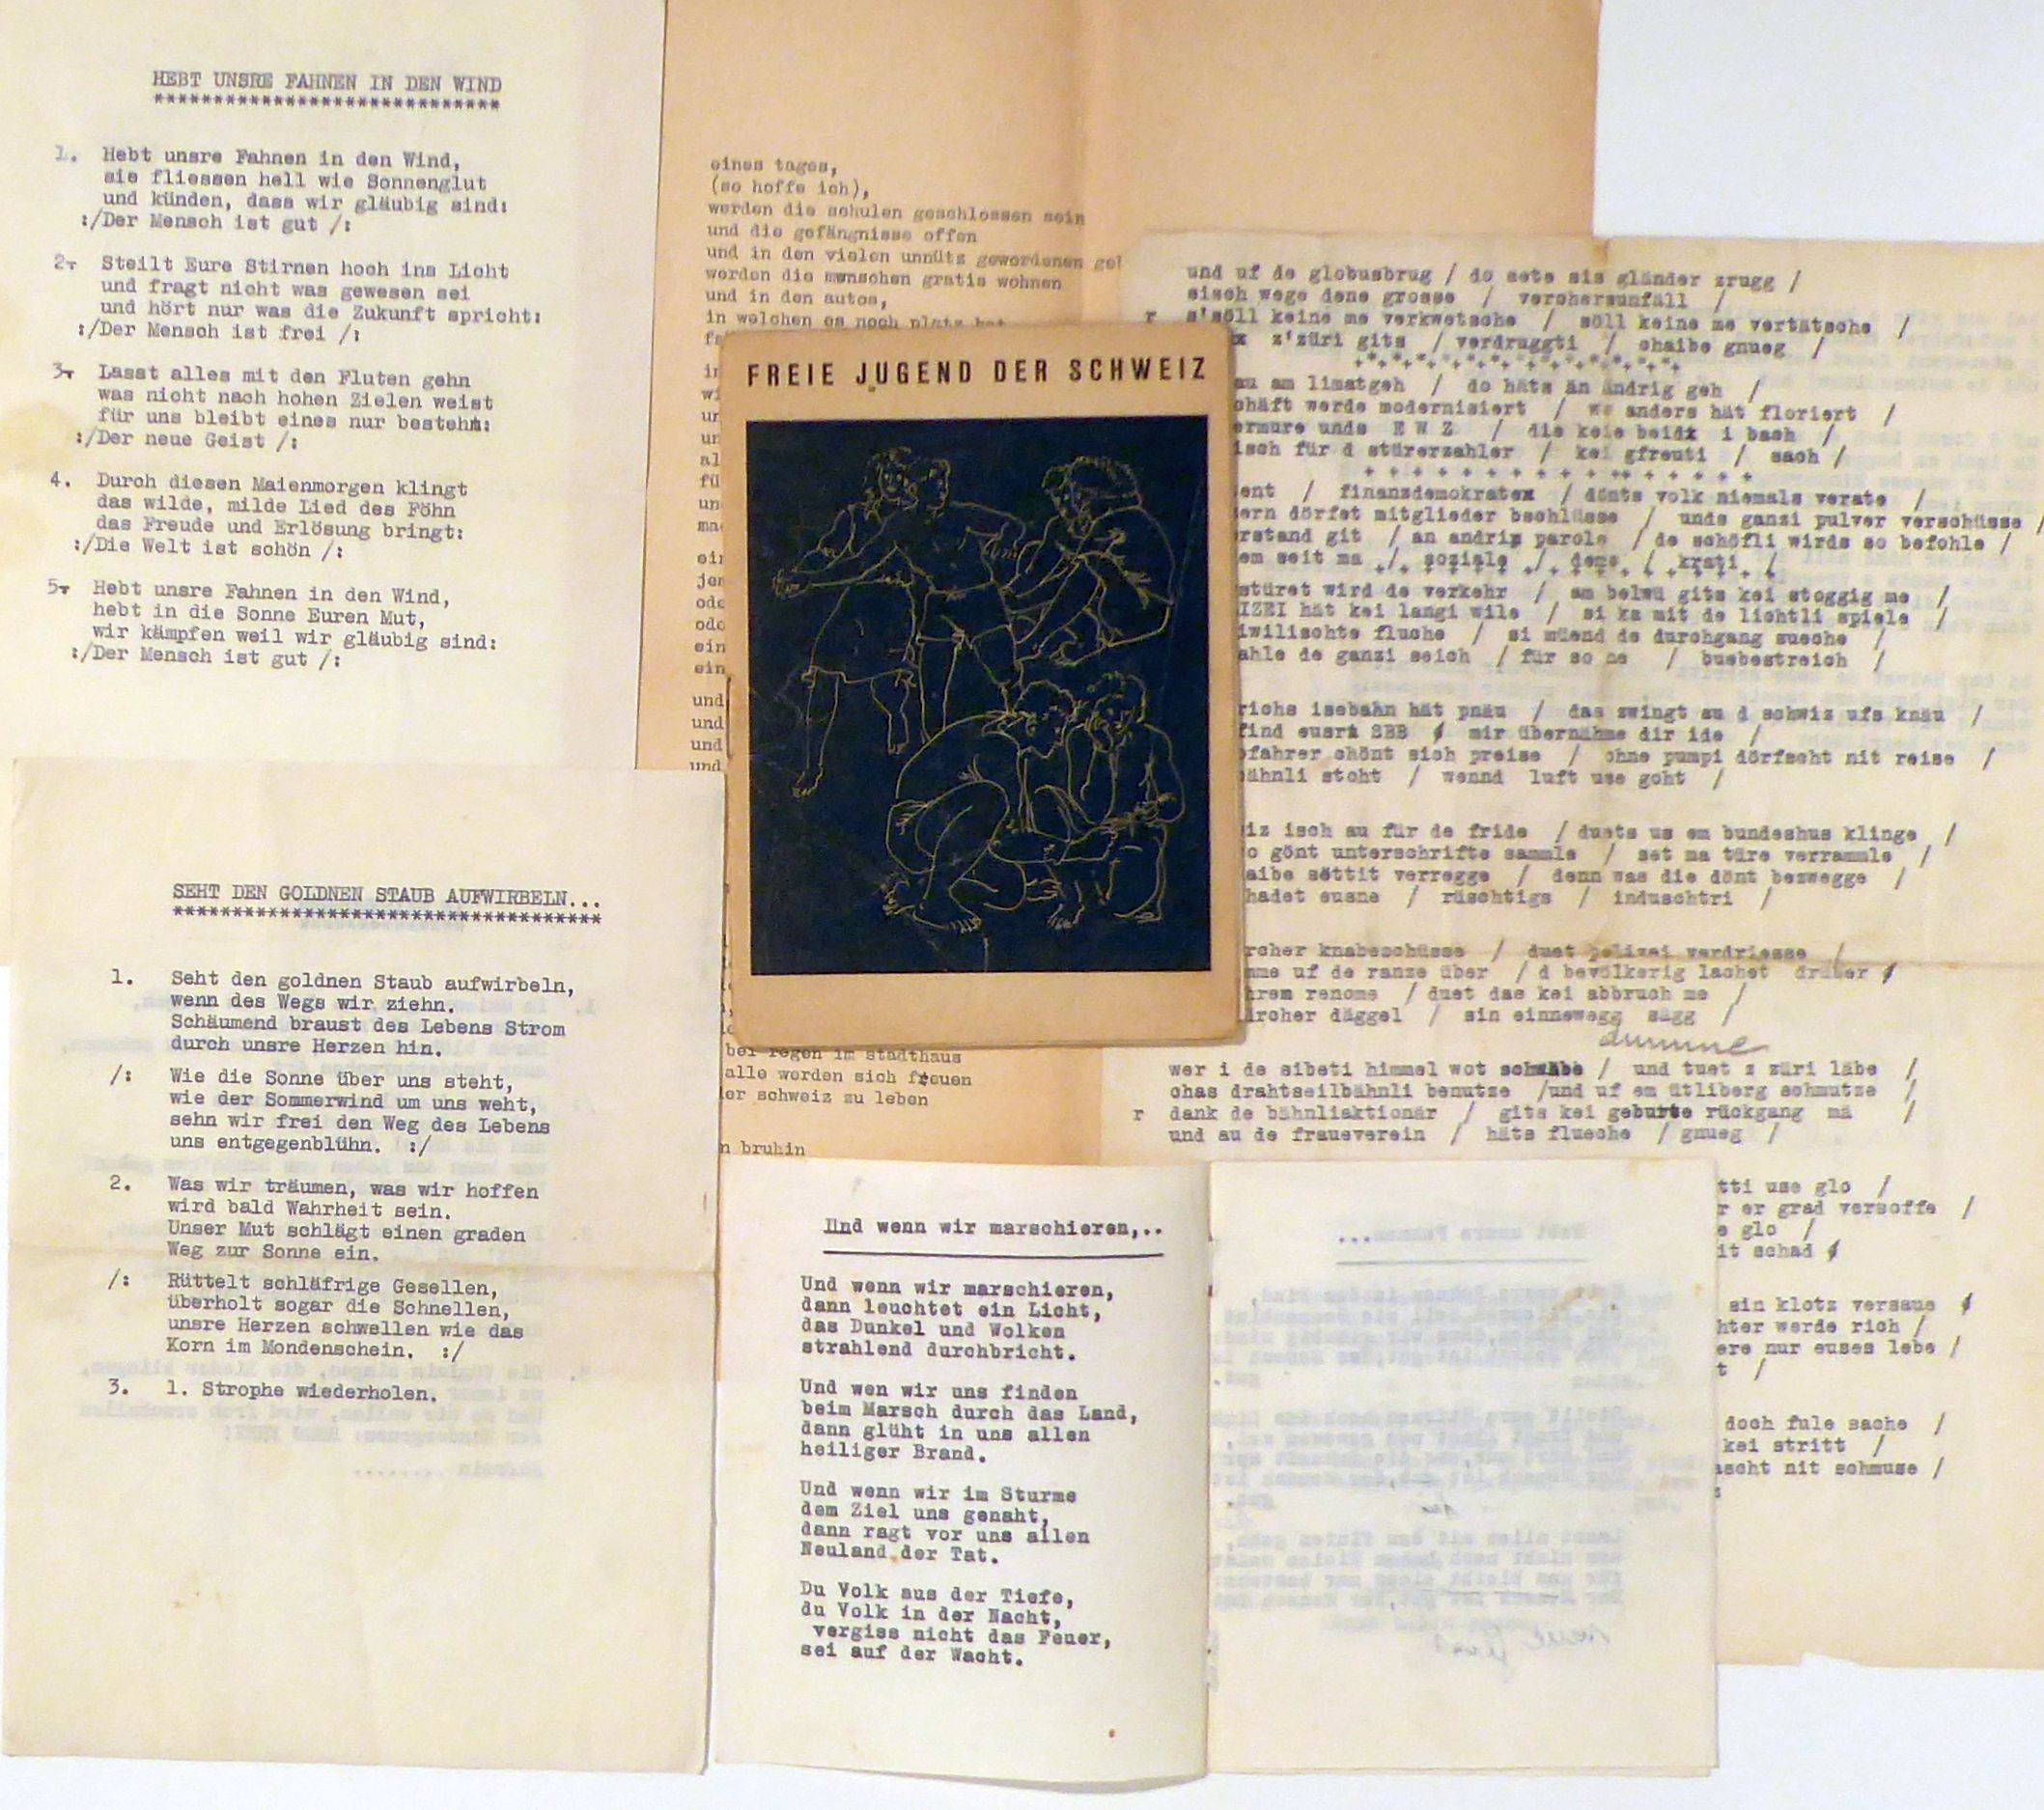 HEBT UNSRE FAHNEN IN DEN WIND
1. Hebt unsre Fahnen in den Wind,
sie fliessen hell wie Sonnenglut
und künden, dass wir gläubig sind:
:/Der Mensch ist gut /:
2. Steilt Eure Stirnen hoch ins Licht
und fragt nicht was gewesen sei
und hört nur was die Zukunft spricht:
:/Der Mensch ist frei /:
3. Lasst alles mit den Fluten gehn
was nicht nach hohen Zielen weist
für uns bleibt eines nur bestehn:
:/Der neue Geist /:
4. Durch diesen Maienmorgen klingt
das wilde, milde Lied des Föhn
das Freude und Erlösung bringt:
:/Die Welt ist schön /:
5. Hebt unsre Fahnen in den Wind,
hebt in die Sonne Euren Mut,
wir kämpfen weil wir gläubig sind:
:/Der Mensch ist gut /:
SEHT DEN GOLDNEN STAUB AUFWIRBELN...
1. Seht den goldnen Staub aufwirbeln,
wenn des Wegs wir ziehn.
Schäumend braust des Lebens Strom
durch unsre Herzen hin.
/: Wie die Sonne über uns steht,
wie der Sommerwind um uns weht,
sehn wir frei den Weg des Lebens
uns entgegenblühn. :/
2. Was wir träumen, was wir hoffen
wird bald Wahrheit sein.
Unser Mut schlägt einen graden
Weg zur Sonne ein.
/: Rüttelt schläfrige Gesellen,
überholt sogar die Schnellen,
unsre Herzen schwellen wie das
Korn im Mondenschein. :/
3. 1. Strophe wiederholen.
eines tages,
(so hoffe ich),
werden die schulen geschlossen sein
und die gefängnisse offen
und in den vielen unnütz gewordenen
werden die menschen gratis wohnen
und in den autos,
in welchen es noch platz hat
und
und
und
und
bei regen im stadthaus
alle werden sich freuen
der schweiz zu leben
bruhin
FREIE JUGEND DER SCHWEIZ
Und wenn wir marschieren,..
Und wenn wir marschieren,
dann leuchtet ein Licht,
das Dunkel und Wolken
strahlend durchbricht.
Und wen wir uns finden
beim Marsch durch das Land,
dann glüht in uns allen
heiliger Brand.
Und wenn wir im Sturme
dem Ziel uns genaht,
dann ragt vor uns allen
Neuland der Tat.
Du Volk aus der Tiefe,
du Volk in der Nacht,
vergiss nicht das Feuer,
sei auf der Wacht.
und uf de globusbrug / do sete sis gländer zrugg /
eisch wege dene grosse / verchersunfäll /
r s'söll keine me verkwetsche / söll keine me vertätsche /
z'züri gits / verdruggti / chaibe gnueg /
au am limatgeh / do häts än ändrig geh /
chäft werde modernisiert / anders hät floriert /
ermure unds E W Z / die keie beidx i bach /
isch für d stürerzahler / kei gfreuti / sach /
ent / finanzdemokratex / dönts volk niemals verate /
ern dörfet mitglieder bschlüsse / unds ganzi pulver verschüsse /
rstand git / an andrix parole / de schöfli wirds so befohle /
em seit ma / soziale / demo / krati /
stüret wird de verkehr / am belwü gits kei stoggig me /
IZEI hät kei langi wile / si ka mit de lichtli spiele /
iwilischte fluche / si müend de durchgang sueche /
ahle de ganzi seich / für so ne / buebestreich /
richs isebahn hät pnäu / das zwingt au d schwiz ufs knäu /
find eusrä SBB / mir übernähme dir ide /
fahrer chönt sich preise / ohne pumpi dörfscht nit reise /
ähnli stoht / wennd luft use goht /
iz isch au für de fride / duets us em bundeshus klinge /
o gönt unterschrifte sammle / set ma türe verrammle /
aibe söttit verregge / denn was die dönt bezwegge /
hadet eusne / rüschtigs / induschtri /
rcher knabeschüsse / duet polizei verdriesse /
mme uf de ranze über / d bevölkerig lachet drüber /
hrem renome / duet das kei abbruch me /
ürcher däggel / sin einnewegg sägg /
wer i de sibeti himmel wot schwäbe / und tuet z züri läbe /
chas drahtseilbähnli benutze /und uf em ütliberg schmutze /
r dank de bähnliaktionär / gits kei geburte rückgang mä /
und au de fraueverein / häts flueche / gnueg /
tti use glo /
r er grad versoffe /
e glo /
it schad /
sin klotz versaue /
hter werde rich /
ere nur euses lebe /
t /
doch fule sache /
kei stritt /
ascht nit schmuse /